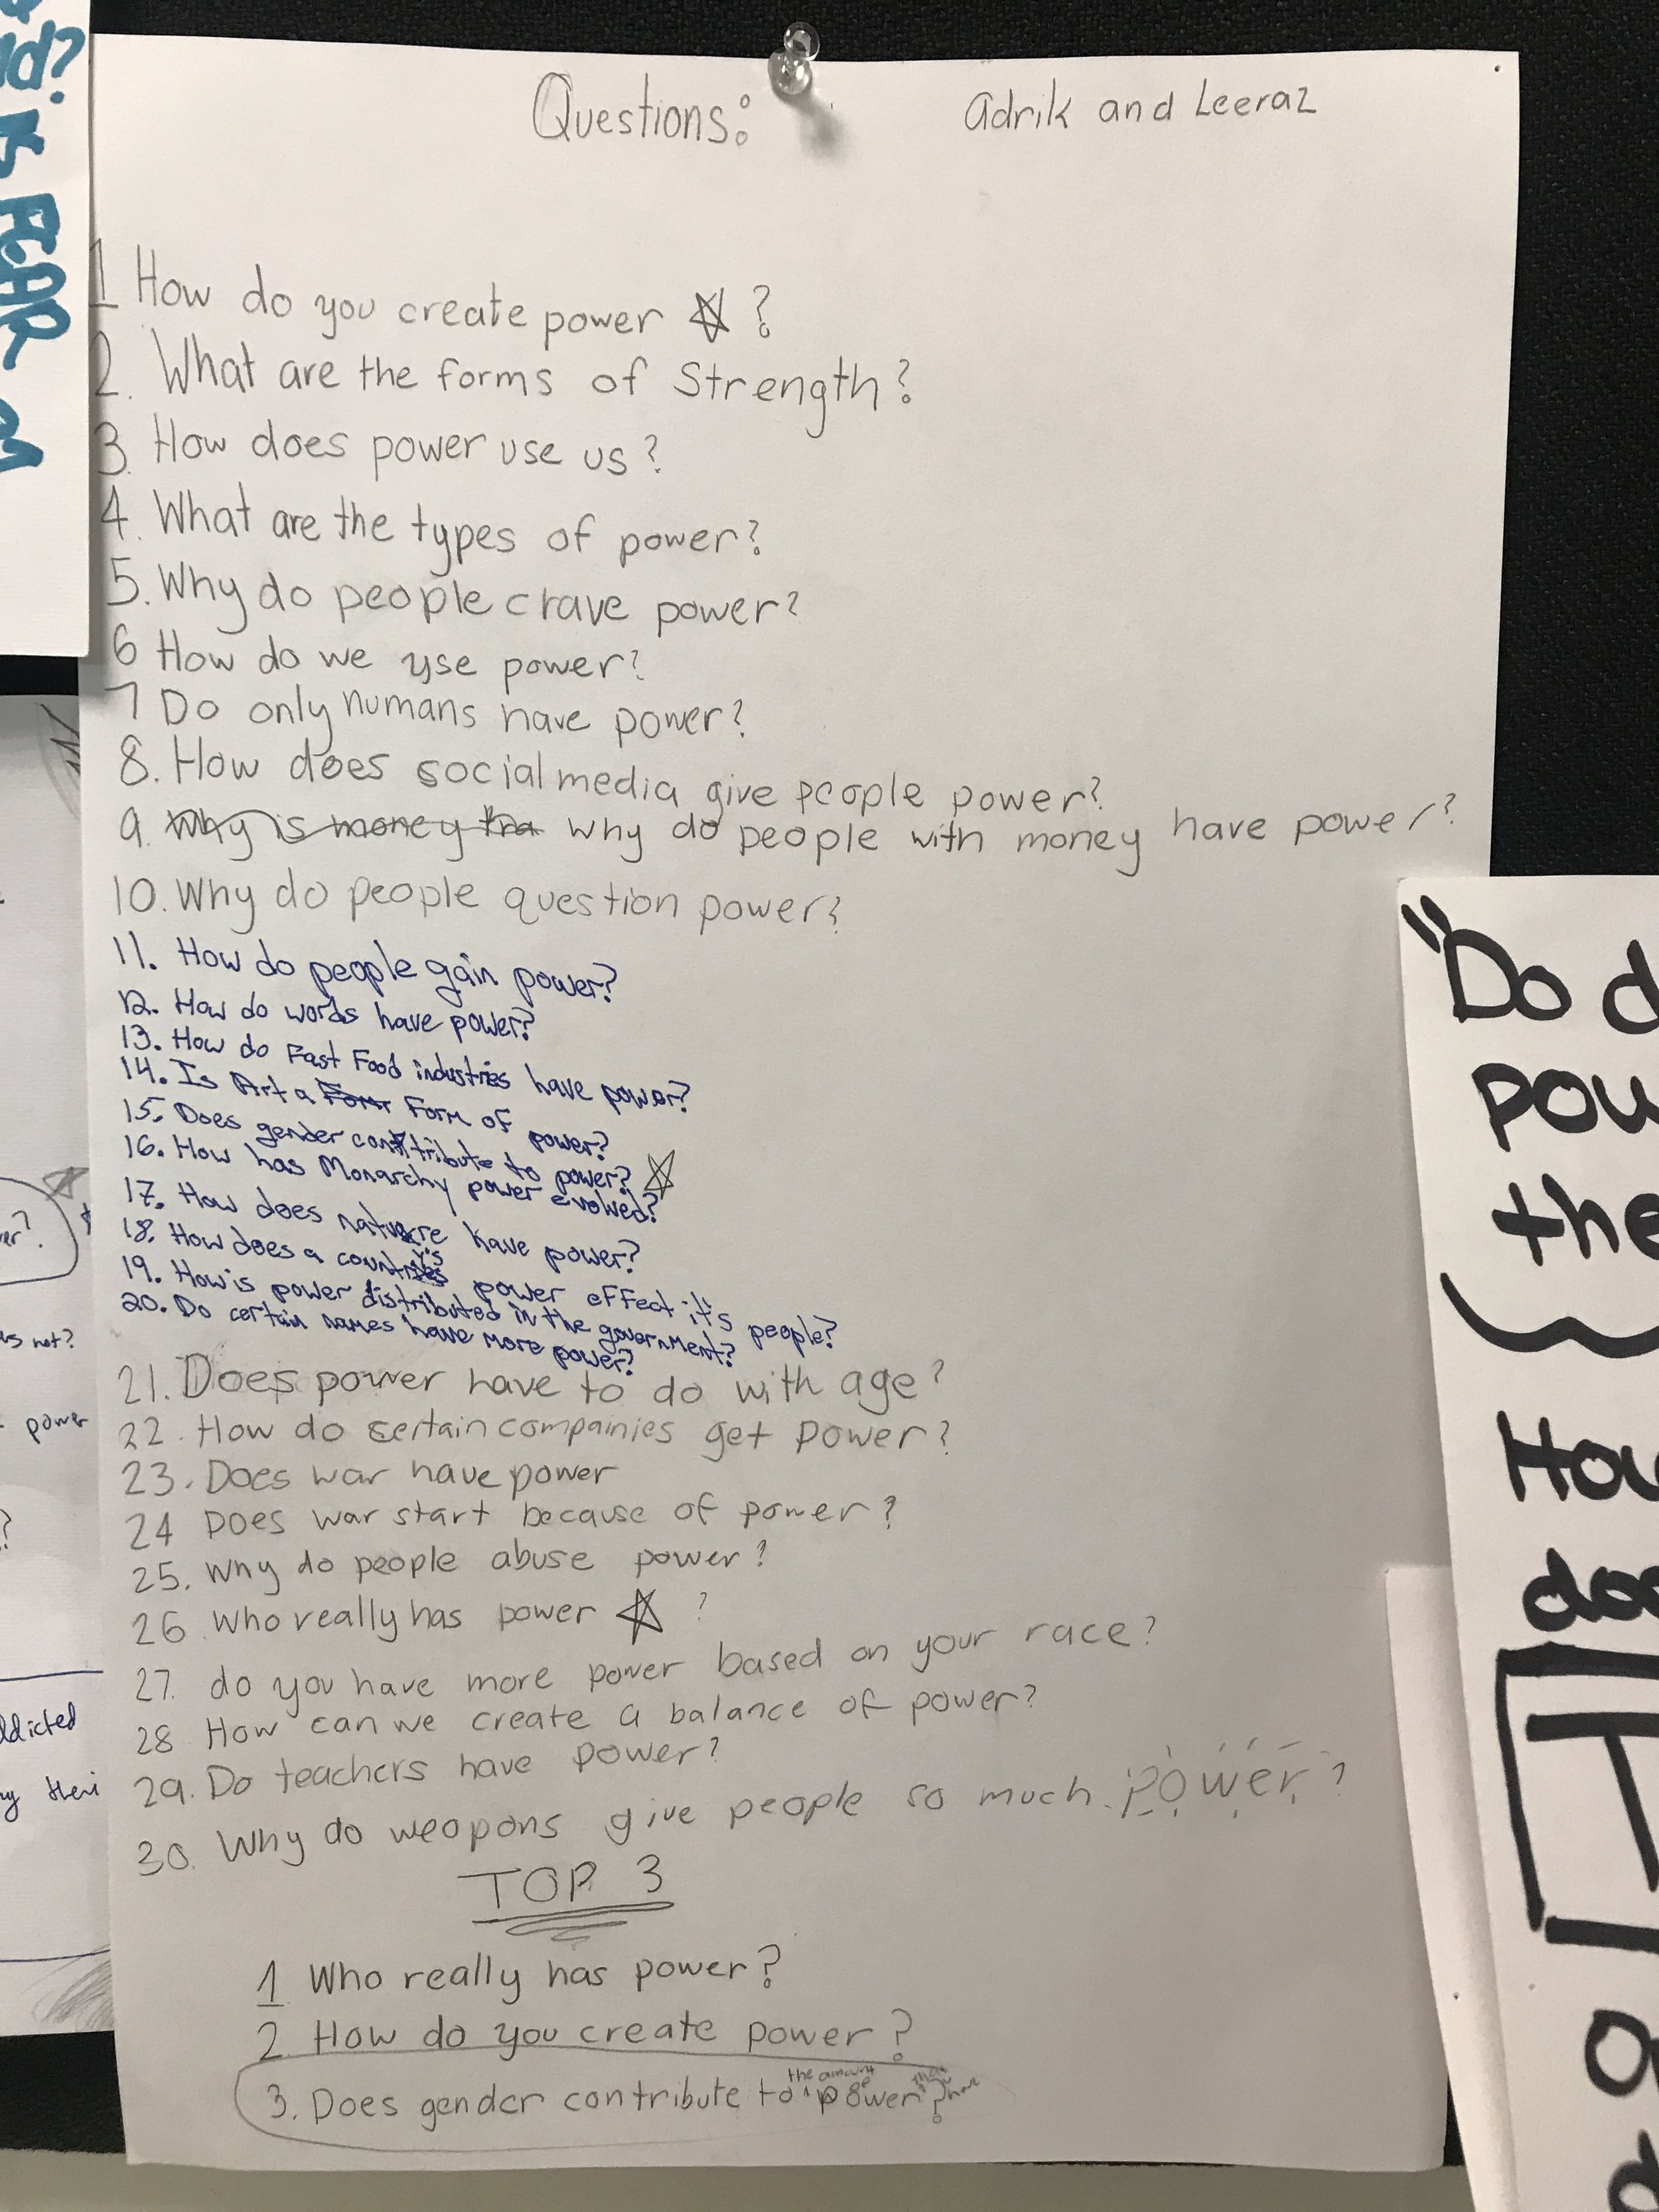 Questions:
Adrik and Leeraz
1 How do you create power ☆ ?
2. What are the forms of Strength?
3. How does power use us?
4. What are the types of power?
5. Why do people crave power?
6 How do we use power?
7 Do only humans have power?
8. How does social media give people power?
9. Why is money tha why do people with money have power?
10. Why do people question power?
11. How do people gain power?
12. How do words have power?
13. How do Fast Food industries have power?
14. Is Art a Form Form of power?
15. Does gender contribute to power? ☆
16. How has Monarchy power evolved?
17. How does nature have power?
18. How does a country's power effect it's people?
19. How is power distributed in the government?
20. Do certain names have more power?
21. Does power have to do with age?
22. How do certain compainies get power?
23. Does war have power
24 Does war start because of power?
25. Why do people abuse power?
26. Who really has power ☆ ?
27. do you have more power based on your race?
28 How can we create a balance of power?
29. Do teachers have power?
30. Why do weapons give people so much power?
TOP 3
1 Who really has power?
2. How do you create power?
3. Does gender contribute to the amount of power they have?
nd?
FEAR
er?
not?
power
?
ddicted
"Do d
pow
the
How
doe